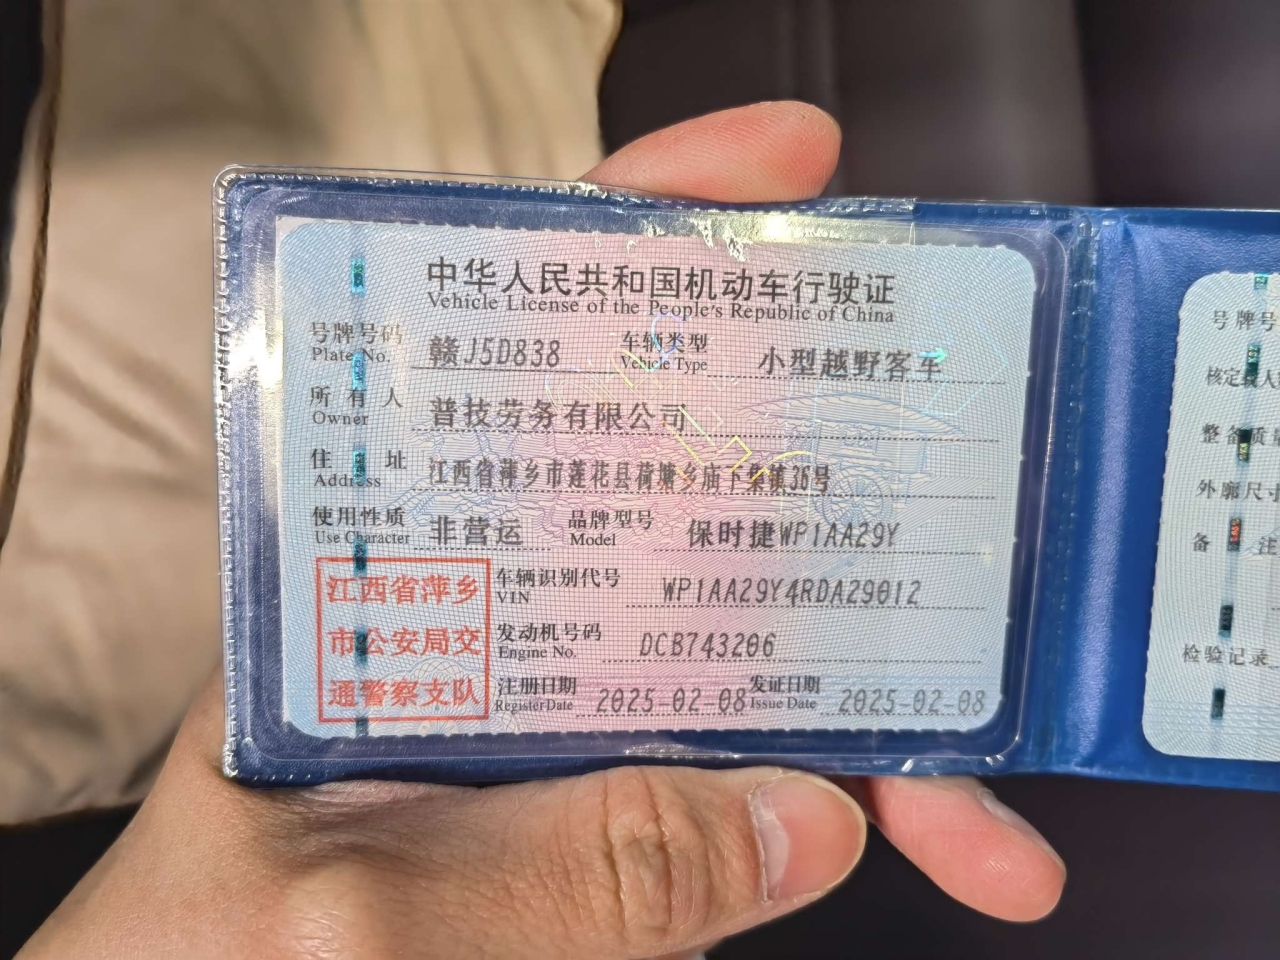 中华人民共和国机动车行驶证
Vehicle License of the People's Republic of China
号牌号码 赣J5D838 车辆类型 小型越野客车
Plate No. Vehicle Type
所有人 普技劳务有限公司
Owner
住址 江西省萍乡市莲花县荷塘乡庙下柴镇36号
Address
使用性质 非营运 品牌型号 保时捷WP1AA29Y
Use Character Model
江西省萍乡
市公安局交
通警察支队
车辆识别代号 WP1AA29Y4RDA29012
VIN
发动机号码 DCB743206
Engine No.
注册日期 2025-02-08 发证日期 2025-02-08
Register Date Issue Date
号牌号
核定载人
整备质
外廓尺寸
备注
检验记录